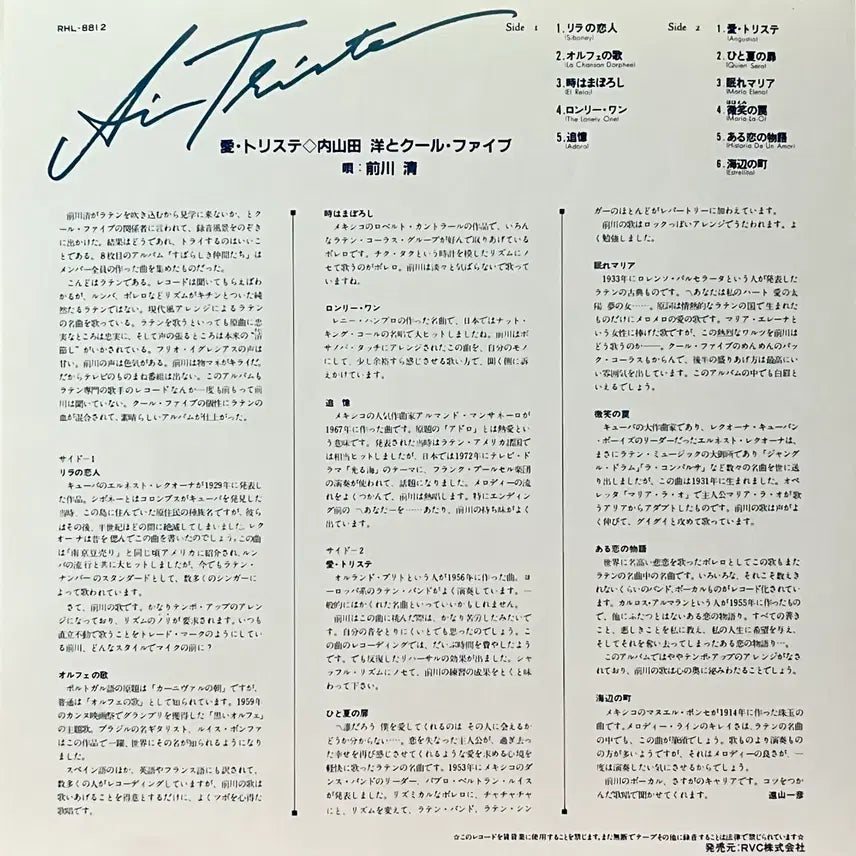 RHL-8812
Ai Triste
愛・トリステ◇内山田 洋とクール・ファイブ
唄：前川 清
Side 1
1.リラの恋人
(Siboney)
2.オルフェの歌
(La Chanson Dorphee)
3.時はまぼろし
(El Reloj)
4.ロンリー・ワン
(The Lonely One)
5.追憶
(Adoro)
Side 2
1.愛・トリステ
(Angustia)
2.ひと夏の扉
(Quien Sera)
3.眠れマリア
(Maria Elena)
4.微笑の罠
(Maria-La-O)
5.ある恋の物語
(Historia De Un Amor)
6.海辺の町
(Estrellita)
前川清がラテンを吹き込むから見学に来ないか、とク
ール・ファイブの関係者に言われて、録音風景をのぞき
に出かけた。結果はどうであれ、トライするのはいいこ
とである。8枚目のアルバム「すばらしき仲間たち」は
メンバー全員の作った曲を集めたものだった。
こんどはラテンである。レコードは聞いてもらえばわ
かるが、ルンバ、ボレロなどリズムがキチンとついた純
然たるラテンではない。現代風アレンジによるラテン
の名曲を歌っている。ラテンを歌うといっても原曲に忠
実なところは忠実に、そして声の張るところは本来の"清
節し"がいかされている。フリオ・イグレシアスの声は
甘い。前川の声は色気がある。前川は物マネがキライだ。
だからテレビのものまね番組は出ない。このアルバムも
ラテン専門の歌手のレコードなんか一度も前もって前
川は聞いていない。クール・ファイブの個性にラテンの
血が混合されて、素晴らしいアルバムが仕上がった。
サイド−1
リラの恋人
キューバのエルネスト・レクオーナが1929年に発表し
た作品。シボネーとはコロンブスがキューバを発見した
当時、この島に住んでいた原住民の種族名ですが、彼ら
はその後、半世紀ほどの間に絶滅してしまいました。レク
オーナは昔を偲んでこの曲を書いたのでしょう。この曲
は「南京豆売り」と同じ頃アメリカに紹介され、ルン
バの流行と共に大ヒットしましたが、今でもラテン・
ナンバーのスタンダードとして、数多くのシンガーに
よって歌われています。
さて、前川の歌です。かなりテンポ・アップのアレン
ジになっており、リズムのノリが要求されます。いつも
直立不動で歌うことをトレード・マークのようにしてい
る前川、どんなスタイルでマイクの前に？
オルフェの歌
ポルトガル語の原題は「カーニヴァルの朝」ですが、
普通は「オルフェの歌」として知られています。1959年
のカンヌ映画祭でグランプリを獲得した「黒いオルフェ」
の主題歌。ブラジルの名ギタリスト、ルイス・ボンファ
はこの作品で一躍、世界にその名が知られるようになり
ました。
スペイン語のほか、英語やフランス語にも訳されて、
数多くの人がレコーディングしていますが、前川の歌は
歌いあげることを得意とするだけに、よくツボを心得た
歌唱です。
時はまぼろし
メキシコのロベルト・カントラールの作品で、いろん
なラテン・コーラス・グループが好んで取りあげている
ボレロです。チク・タクという時計を模したリズムにノ
セて歌うのがボレロ。前川は淡々と気ばらないで歌って
いますね。
ロンリー・ワン
レニー・ハンブロの作った名曲で、日本ではナット・
キング・コールの名唱で大ヒットしましたね。前川はボ
サノバ・タッチにアレンジされたこの曲を、自分のモノ
にして、少し余裕すら感じさせる歌い方で、聞く側に訴
えかけています。
追 憶
メキシコの人気作曲家アルマンド・マンサネーロが
1967年に作った曲です。原題の「アドロ」とは熱愛とい
う意味です。発表された当時はラテン・アメリカ諸国で
は相当ヒットしましたが、日本では1972年にテレビ・ド
ラマ「光る海」のテーマに、フランク・プールセル楽団
の演奏が使われて、話題になりました。メロディーの流
れをよくつかんで、前川は熱唱します。特にエンディン
グ前の 〽あなた−を……あたり、前川の持ち味がよく
出ています。
サイド−2
愛・トリステ
オルランド・ブリトという人が1956年に作った曲。ヨ
ーロッパ系のラテン・バンドがよく演奏しています。一
般的にはかくれた名曲といっていいかもしれません。
前川はこの曲に挑んだ際は、かなり苦労したみたいで
す。自分の音をとりにくいとでも思ったのでしょう。こ
の曲のレコーディングでは、だいぶ時間を費やしたよう
です。でも反復したリハーサルの効果が出ました。シャ
ッフル・リズムにノセて、前川の練習の成果をとくと味
わって下さい。
ひと夏の扉
〽誰だろう 僕を愛してくれるのは その人に会えるか
どうか分からない……。恋を失なった主人公が、過ぎ去っ
た幸せを再び感じさせてくれるような愛を求める心境を
軽快に歌ったラテンの名曲です。1953年にメキシコのダ
ンス・バンドのリーダー、パブロ・ベルトラン・ルイス
が発表しました。リズミカルなボレロに、チャチャチャ
にと、リズムを変えて、ラテン・バンド、ラテン・シン
ガーのほとんどがレパートリーに加わえています。
前川の歌はロックっぽいアレンジでうたわれます。よ
く勉強しました。
眠れマリア
1933年にロレンソ・バルセラータという人が発表した
ラテンの古典ものです。〽あなたは私のハート 愛の太
陽 夢の女……。原詞は情熱的なラテンの国で生まれた
ものだけにメロメロの愛の歌です。マリア・エレーナと
いう女性に捧げた歌ですが、この熱烈なワルツを前川は
どう歌うのか——。クール・ファイブのめんめんのバッ
ク・コーラスもからんで、後半の盛りあげ方は最高にい
い雰囲気を出しています。このアルバムの中でも白眉と
いえるでしょう。
微笑の罠
キューバの大作曲家であり、レクオーナ・キューバン
・ボーイズのリーダーだったエルネスト・レクオーナは、
まさにラテン・ミュージックの大御所であり「ジャング
ル・ドラム」「ラ・コンパルサ」など数々の名曲を世に送
り出しましたが、この曲は1931年に生まれました。オペ
レッタ「マリア・ラ・オ」で主人公マリア・ラ・オが歌
うアリアからアダプトしたものです。前川の歌は声がよ
く伸びて、グイグイと攻めて歌っています。
ある恋の物語
世界に名高い悲恋を歌ったボレロとしてこの歌もまた
ラテンの名曲中の名曲です。いろいろな、それこそ数えき
れないくらいのバンド、ボーカルものがレコード化されて
います。カルロス・アルマランという人が1955年に作ったもの
で、他にふたつとはないある恋の物語り。すべての善き
こと、悪しきことを私に教え、私の人生に希望を与え、
そしてそれを奪い去ってしまったある恋の物語り…。
このアルバムではややテンポ・アップのアレンジがなさ
れており、前川の歌は心の奥に泌みわたることでしょう。
海辺の町
メキシコのマヌエル・ポンセが1914年に作った珠玉の
曲です。メロディー・ラインのキレイさは、ラテンの名曲
の中でも、この曲が筆頭でしょう。歌ものより演奏もの
の方が多いようですが、それはメロディーの良さが、一
度は演奏したい気にさせるからでしょう。
前川のボーカル、さすがのキャリアです。コツをつか
んだ歌唱で聞かせてくれます。
遠山一彦
☆このレコードを賃貸業に使用することを禁じます。また無断でテープその他に録音することは法律で禁じられています☆
発売元：RVC株式会社